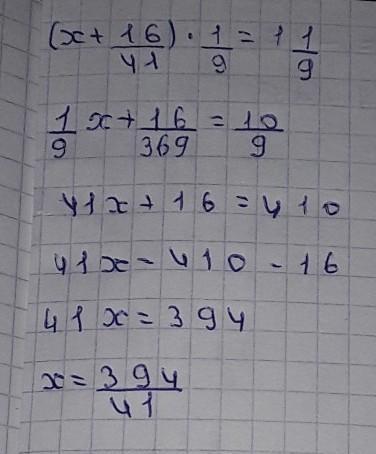 (x + 16/41) · 1/9 = 1 1/9
1/9 x + 16/369 = 10/9
41x + 16 = 410
41x - 410 - 16
41x = 394
x = 394/41